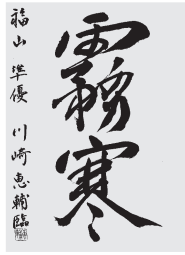 霧寒
福山 準優 川崎恵輔臨